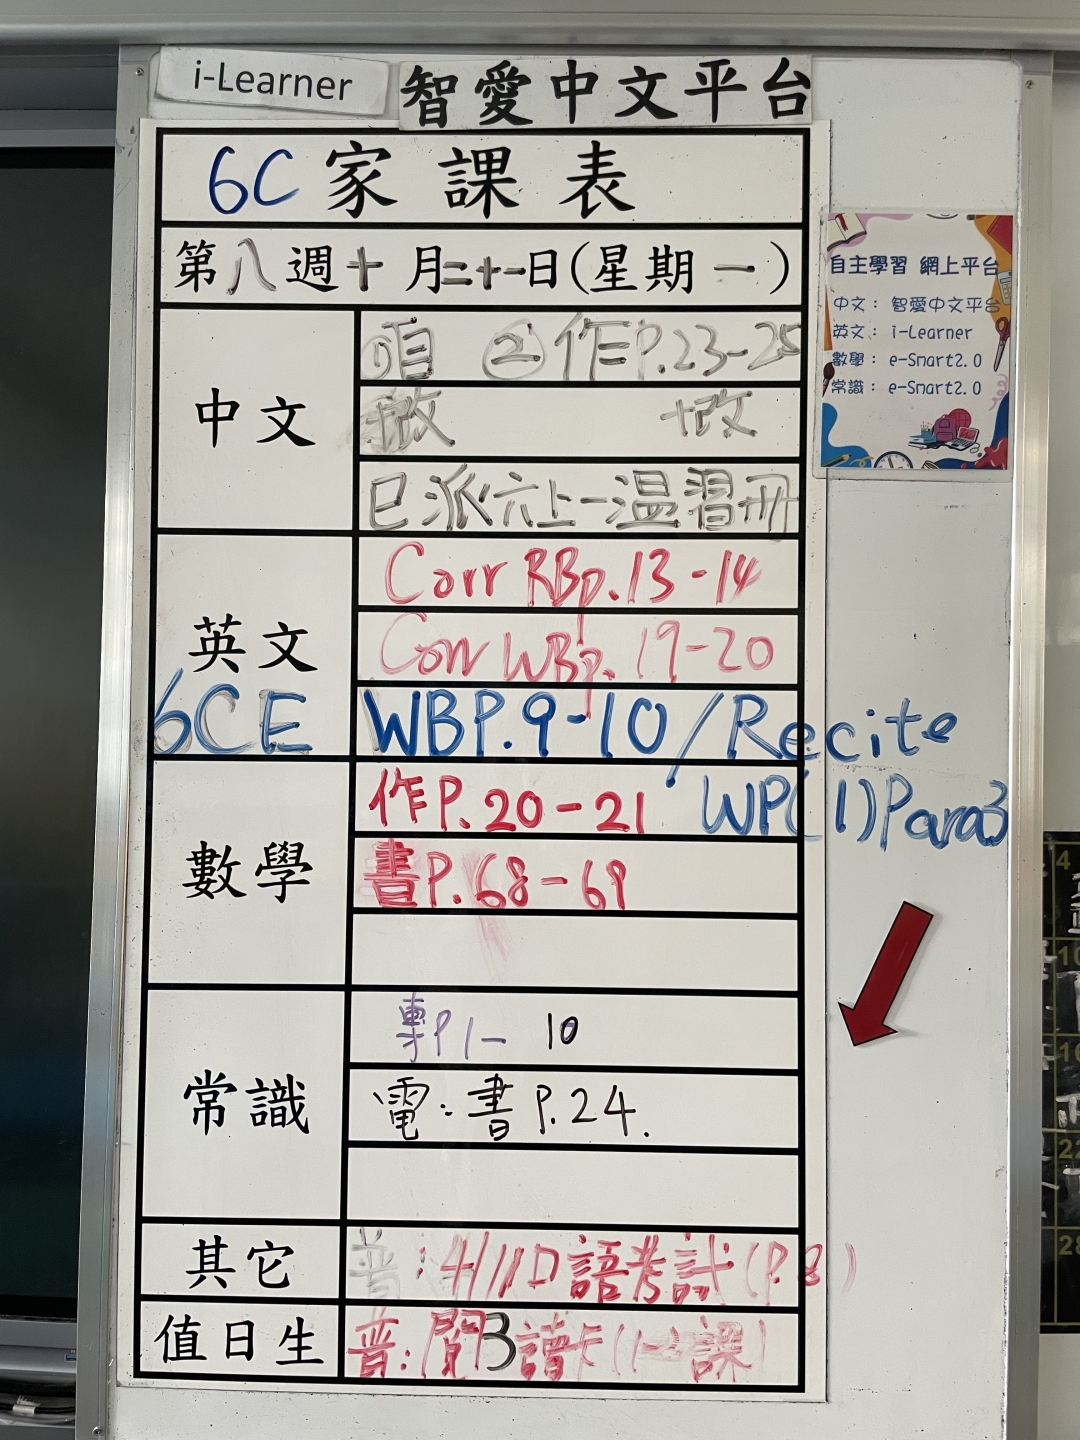 i-Learner
智愛中文平台
6C家課表
第八週十月二十一日(星期一)
自主學習 網上平台
中文： 智愛中文平台
英文： i-Learner
數學： e-Smart2.0
常識： e-Smart2.0
中文
① 自 ② 作P.23-25
改 改
已派六上一溫習冊
英文
Corr RBp.13-14
Corr WBp. 19-20
6CE
WBP.9-10/Recite
WP(1)Para3
數學
作P.20-21
書P.68-69
常識
專P1- 10
電：書P.24.
其它
普：4/11口語考試(P.8)
值日生
普：閱3讀卡(1-3課)